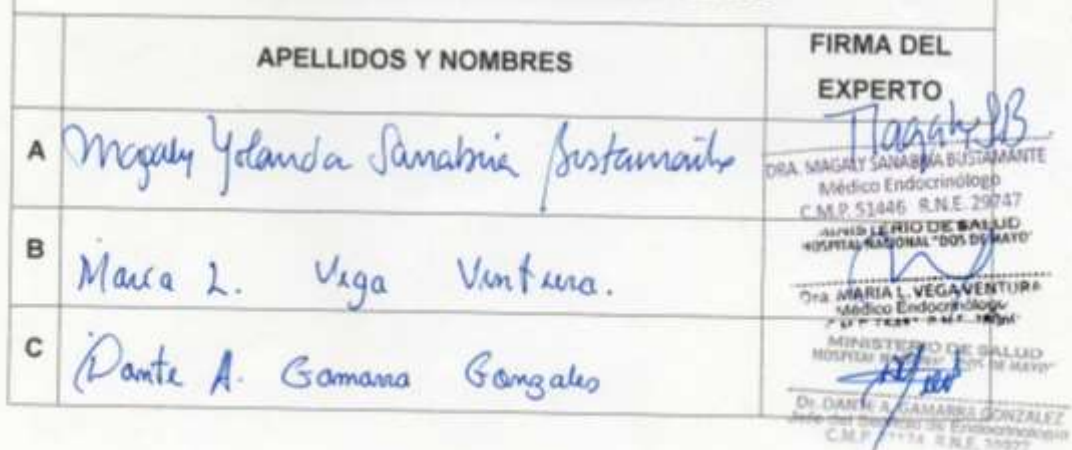 APELLIDOS Y NOMBRES
FIRMA DEL EXPERTO
A Magaly Yolanda Sanabria Bustamante
Magaly SB.
DRA. MAGALY SANABRIA BUSTAMANTE
Médico Endocrinólogo
C.M.P. 51446 R.N.E. 29747
B Maria L. Vega Ventura.
MINISTERIO DE SALUD
HOSPITAL NACIONAL "DOS DE MAYO"
Dra. MARIA L. VEGA VENTURA
Médico Endocrinólogo
C Dante A. Gamarra Gonzales
MINISTERIO DE SALUD
HOSPITAL "DOS DE MAYO"
Dr. DANTE A. GAMARRA GONZALEZ
Jefe del Servicio de Endocrinología
C.M.P. R.N.E.